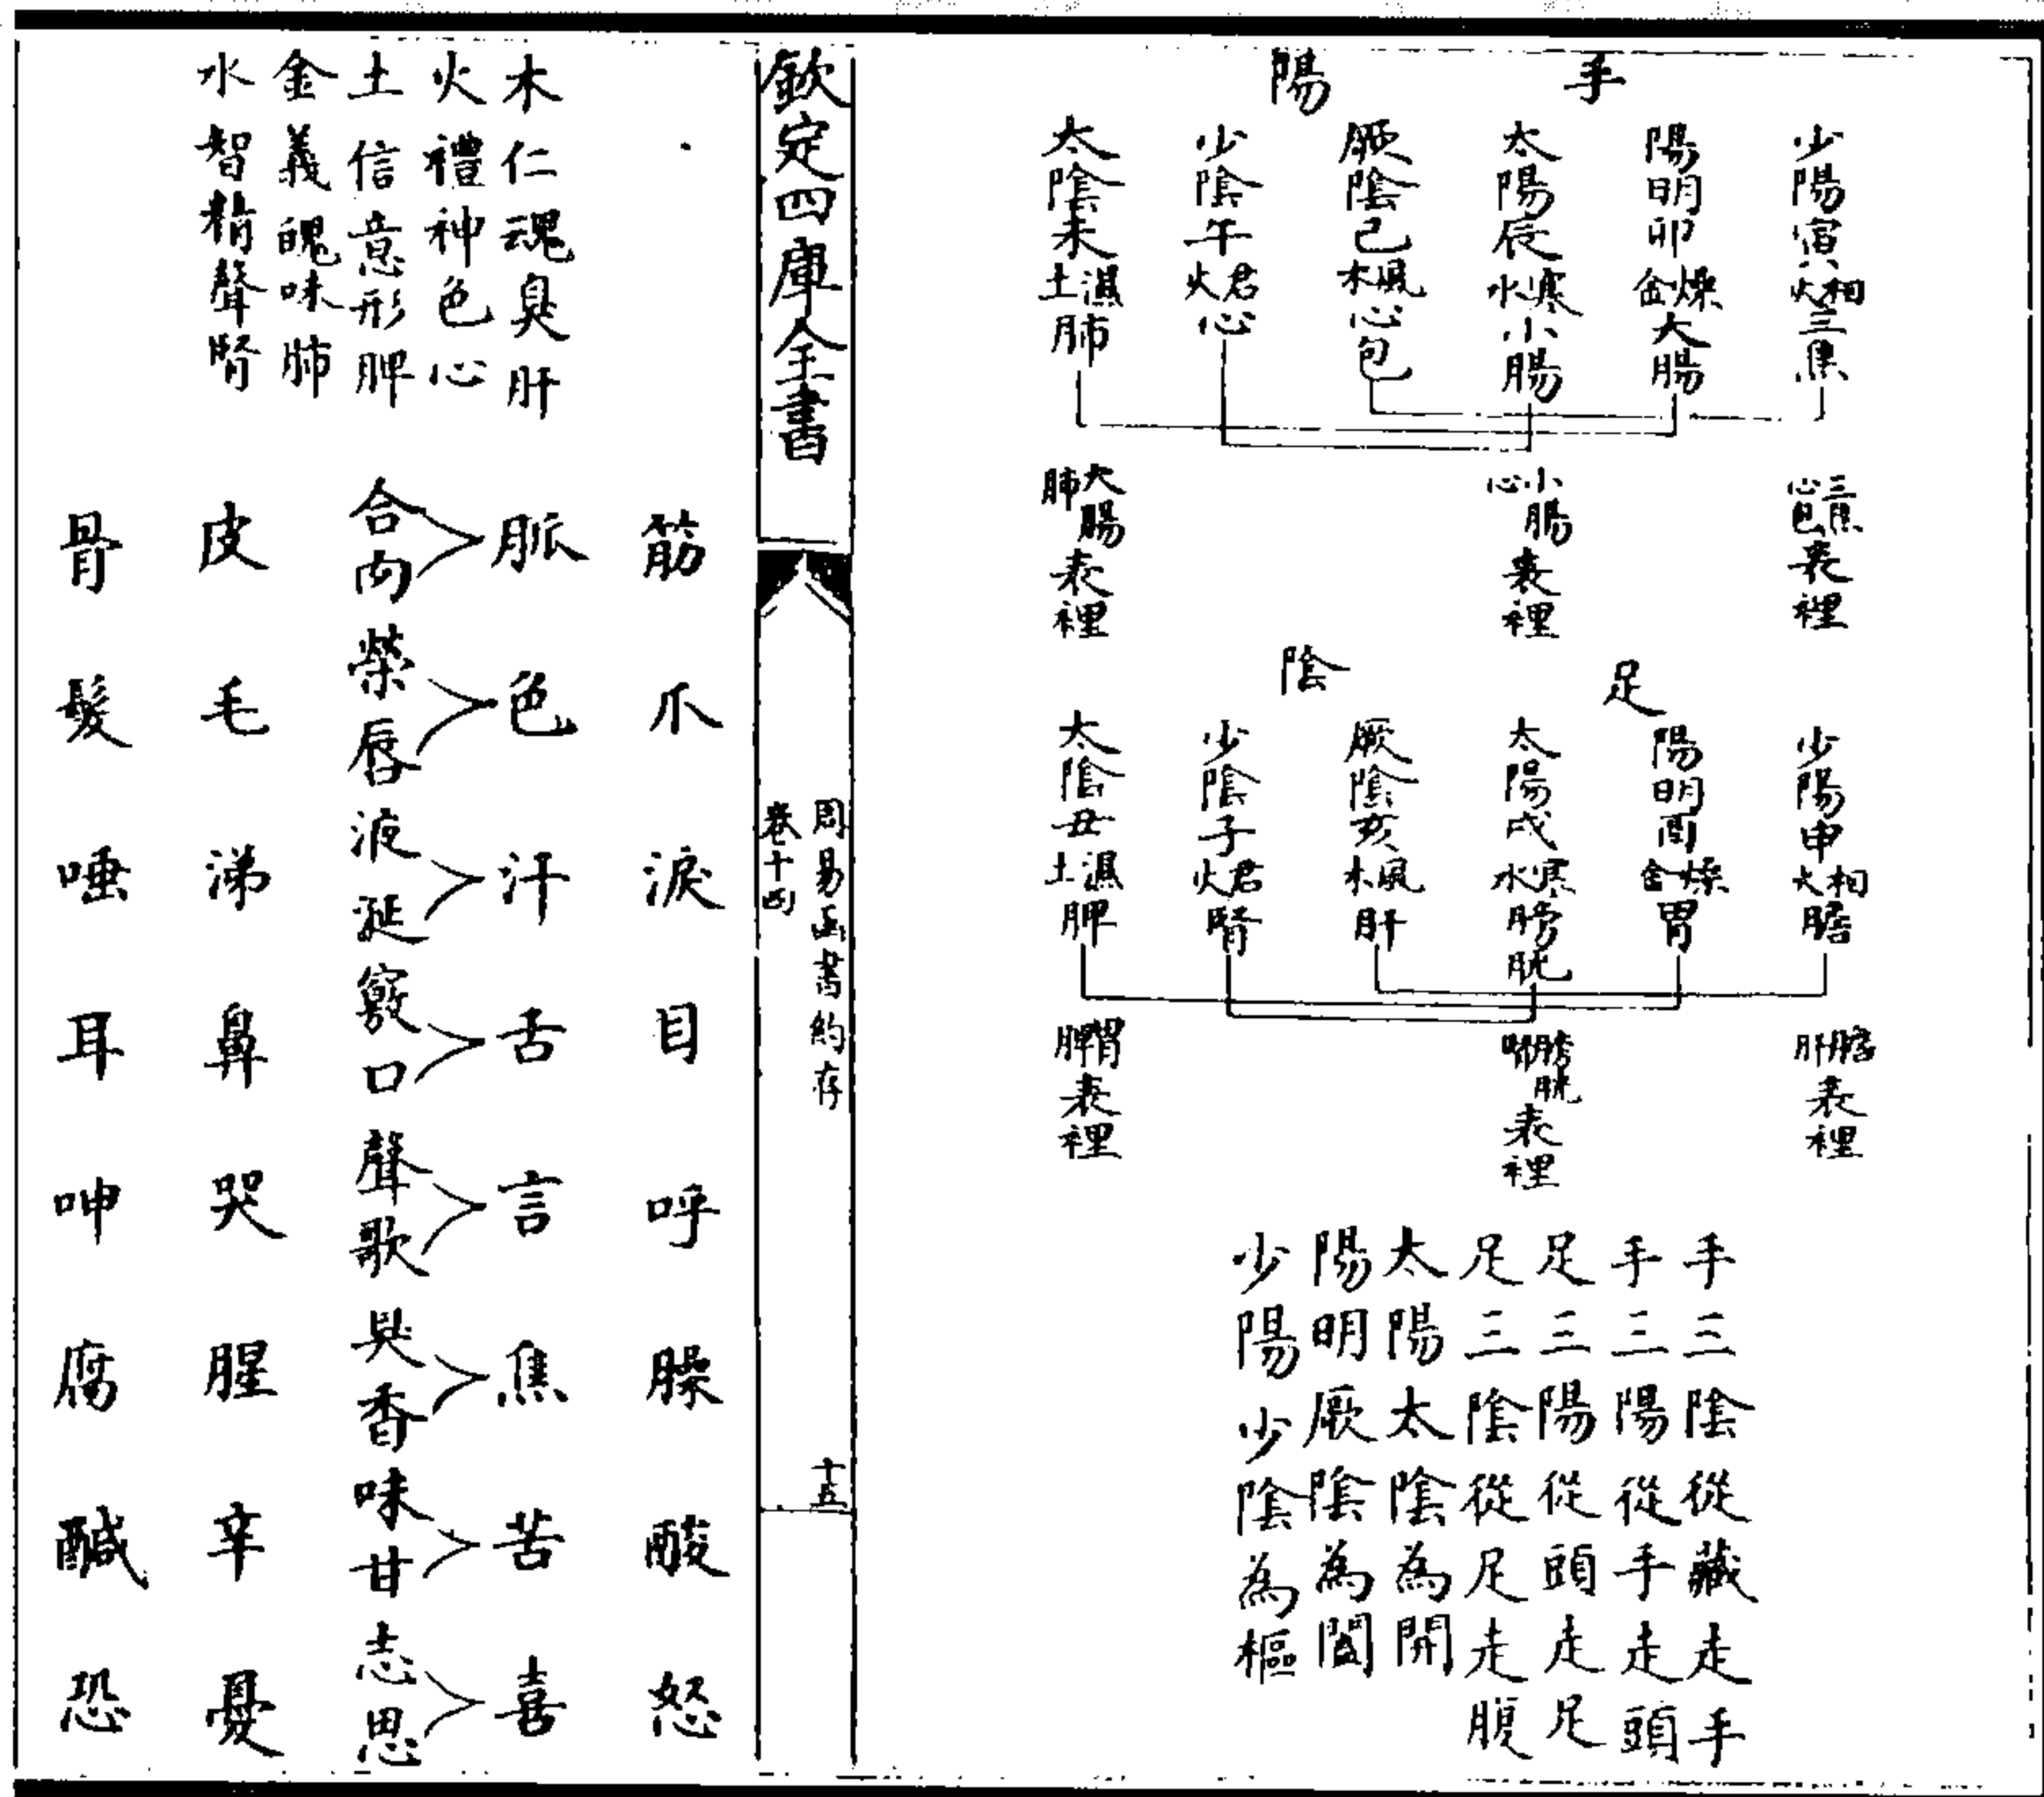 手
陽
少陽寅相火三焦
陽明卯燥金大腸
太陽辰寒水小腸
厥陰巳風木心包
少陰午君火心
太陰未濕土肺
三焦心包表裡
小腸心表裡
大腸肺表裡
足
陰
少陽申相火膽
陽明酉燥金胃
太陽戌寒水膀胱
厥陰亥風木肝
少陰子君火腎
太陰丑濕土脾
膽肝表裡
膀胱腎表裡
胃脾表裡
手三陰從藏走手
手三陽從手走頭
足三陽從頭走足
足三陰從足走腹
太陽太陰為開
陽明厥陰為闔
少陽少陰為樞
欽定四庫全書
周易函書約存
卷十四
十五
木仁魂臭肝
火禮神色心
土信意形脾
金義魄味肺
水智精聲腎
筋爪淚目呼臊酸怒
脈色汗舌言焦苦喜
合肉榮唇液涎竅口聲歌臭香味甘志思
皮毛涕鼻哭腥辛憂
骨髮唾耳呻腐鹹恐